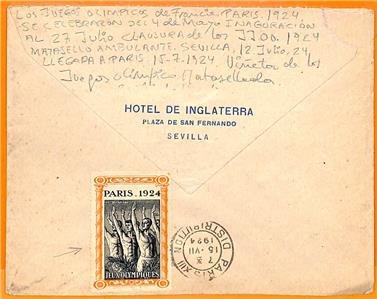 LOS JUEGOS OLIMPICOS de Francia-PARIS. 1924
SE CELEBRARON DEL 4 de Mayo INAGURACIÓN
AL 27 Julio CLAUSURA de los JJ.OO. 1924
MATASELLO AMBULANTE. SEVILLA, 12 Julio, 24
LLEGADA A PARIS. 15-7-1924. Viñeta de los
Juegos olimpico Matasellada
HOTEL DE INGLATERRA
PLAZA DE SAN FERNANDO
SEVILLA
PARIS.1924
JEUX.OLYMPIQUES
PARIS XIII
7 X
15-VII
1924
DISTRIBUTION